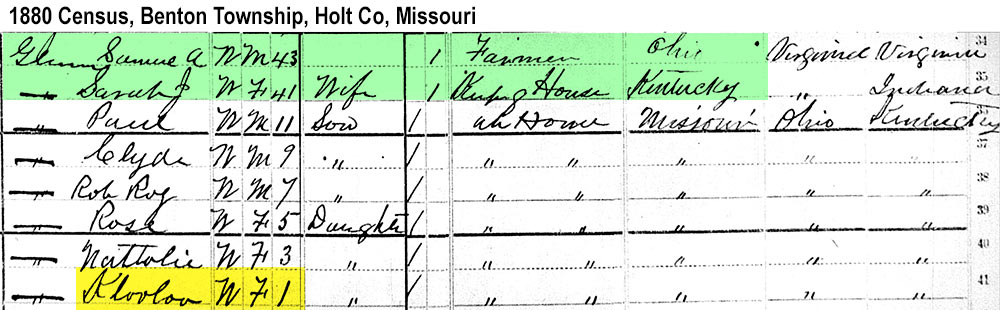 1880 Census, Benton Township, Holt Co, Missouri
Glenn Samuel A W M 43 1 Farmer Ohio Virginia Virginia 34
" Sarah J W F 41 Wife 1 Keeping House Kentucky " Indiana 35
" Paul W M 11 Son / at Home Missouri Ohio Kentucky
" Clyde W M 9 " / " " " " " 37
" Rob Roy W M 7 " / " " " " " 38
" Rose W F 5 Daughter / " " " " " 39
" Nattolie W F 3 " / " " " " " 40
" Klooloo W F 1 " / " " " " " 41